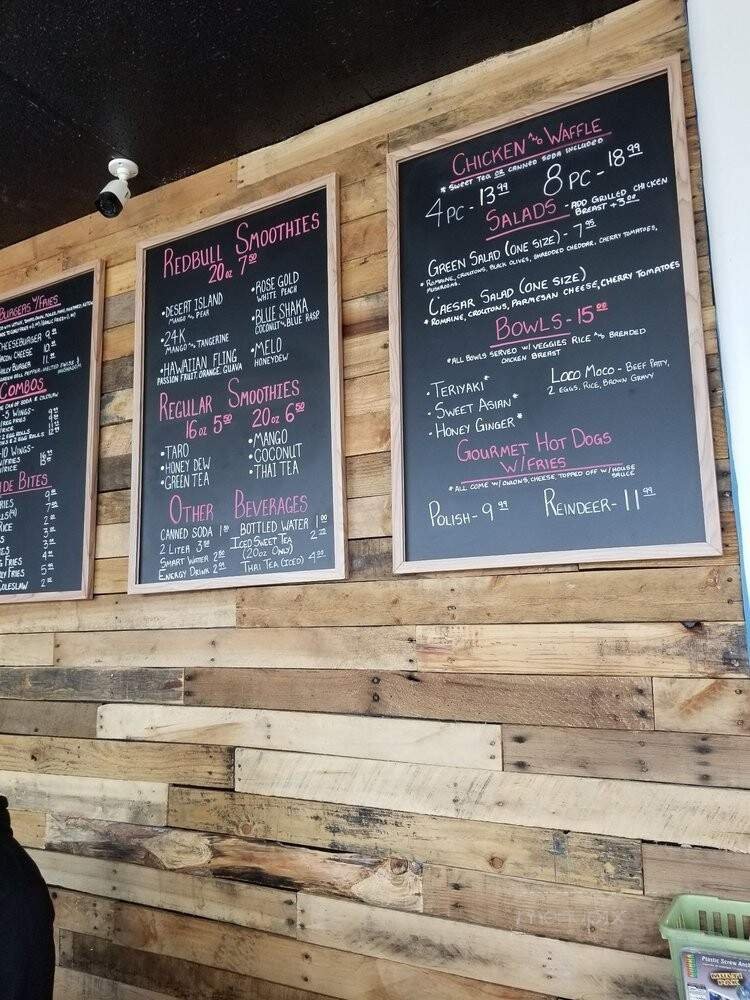 BURGERS W/FRIES
CHEESEBURGER 9
BACON CHEESE 10
BURGER 11
COMBOS
-5 WINGS-
2 EGG ROLLS
& 2 EGG ROLLS
10 WINGS-
W/FRIES
W/RICE
SIDE BITES
FRIES
RICE
FRIES
COLESLAW
REDBULL SMOOTHIES
20oz 7.50
•DESERT ISLAND
MANGO PEAR
•24K
MANGO TANGERINE
•HAWAIIAN FLING
PASSION FRUIT, ORANGE, GUAVA
•ROSE GOLD
WHITE PEACH
•BLUE SHAKA
COCONUT BLUE RASP
•MELO
HONEYDEW
REGULAR SMOOTHIES
16oz 5.50 20oz 6.50
•TARO
•HONEY DEW
•GREEN TEA
•MANGO
•COCONUT
•THAI TEA
OTHER BEVERAGES
CANNED SODA 1
2 LITER 3
SMART WATER 2
ENERGY DRINK 2
BOTTLED WATER 1
ICED SWEET TEA 2
(20oz ONLY)
THAI TEA (ICED) 4
CHICKEN AND WAFFLE
* SWEET TEA OR CANNED SODA INCLUDED
4PC - 13.99 8PC - 18.99
SALADS - ADD GRILLED CHICKEN
BREAST +3.00
GREEN SALAD (ONE SIZE) - 7.95
*ROMAINE, CROUTONS, BLACK OLIVES, SHREDDED CHEDDAR, CHERRY TOMATOES,
MUSHROOMS.
CAESAR SALAD (ONE SIZE)
*ROMAINE, CROUTONS, PARMESAN CHEESE, CHERRY TOMATOES
BOWLS - 15.00
*ALL BOWLS SERVED W/ VEGGIES RICE AND BREADED
CHICKEN BREAST
•TERIYAKI*
•SWEET ASIAN*
•HONEY GINGER*
LOCO MOCO - BEEF PATTY,
2 EGGS, RICE, BROWN GRAVY
GOURMET HOT DOGS
W/FRIES
*ALL COME W/ONIONS, CHEESE, TOPPED OFF W/HOUSE
SAUCE
POLISH - 9.99 REINDEER - 11.99
menupix
Plastic Screw
MULTI
PAK